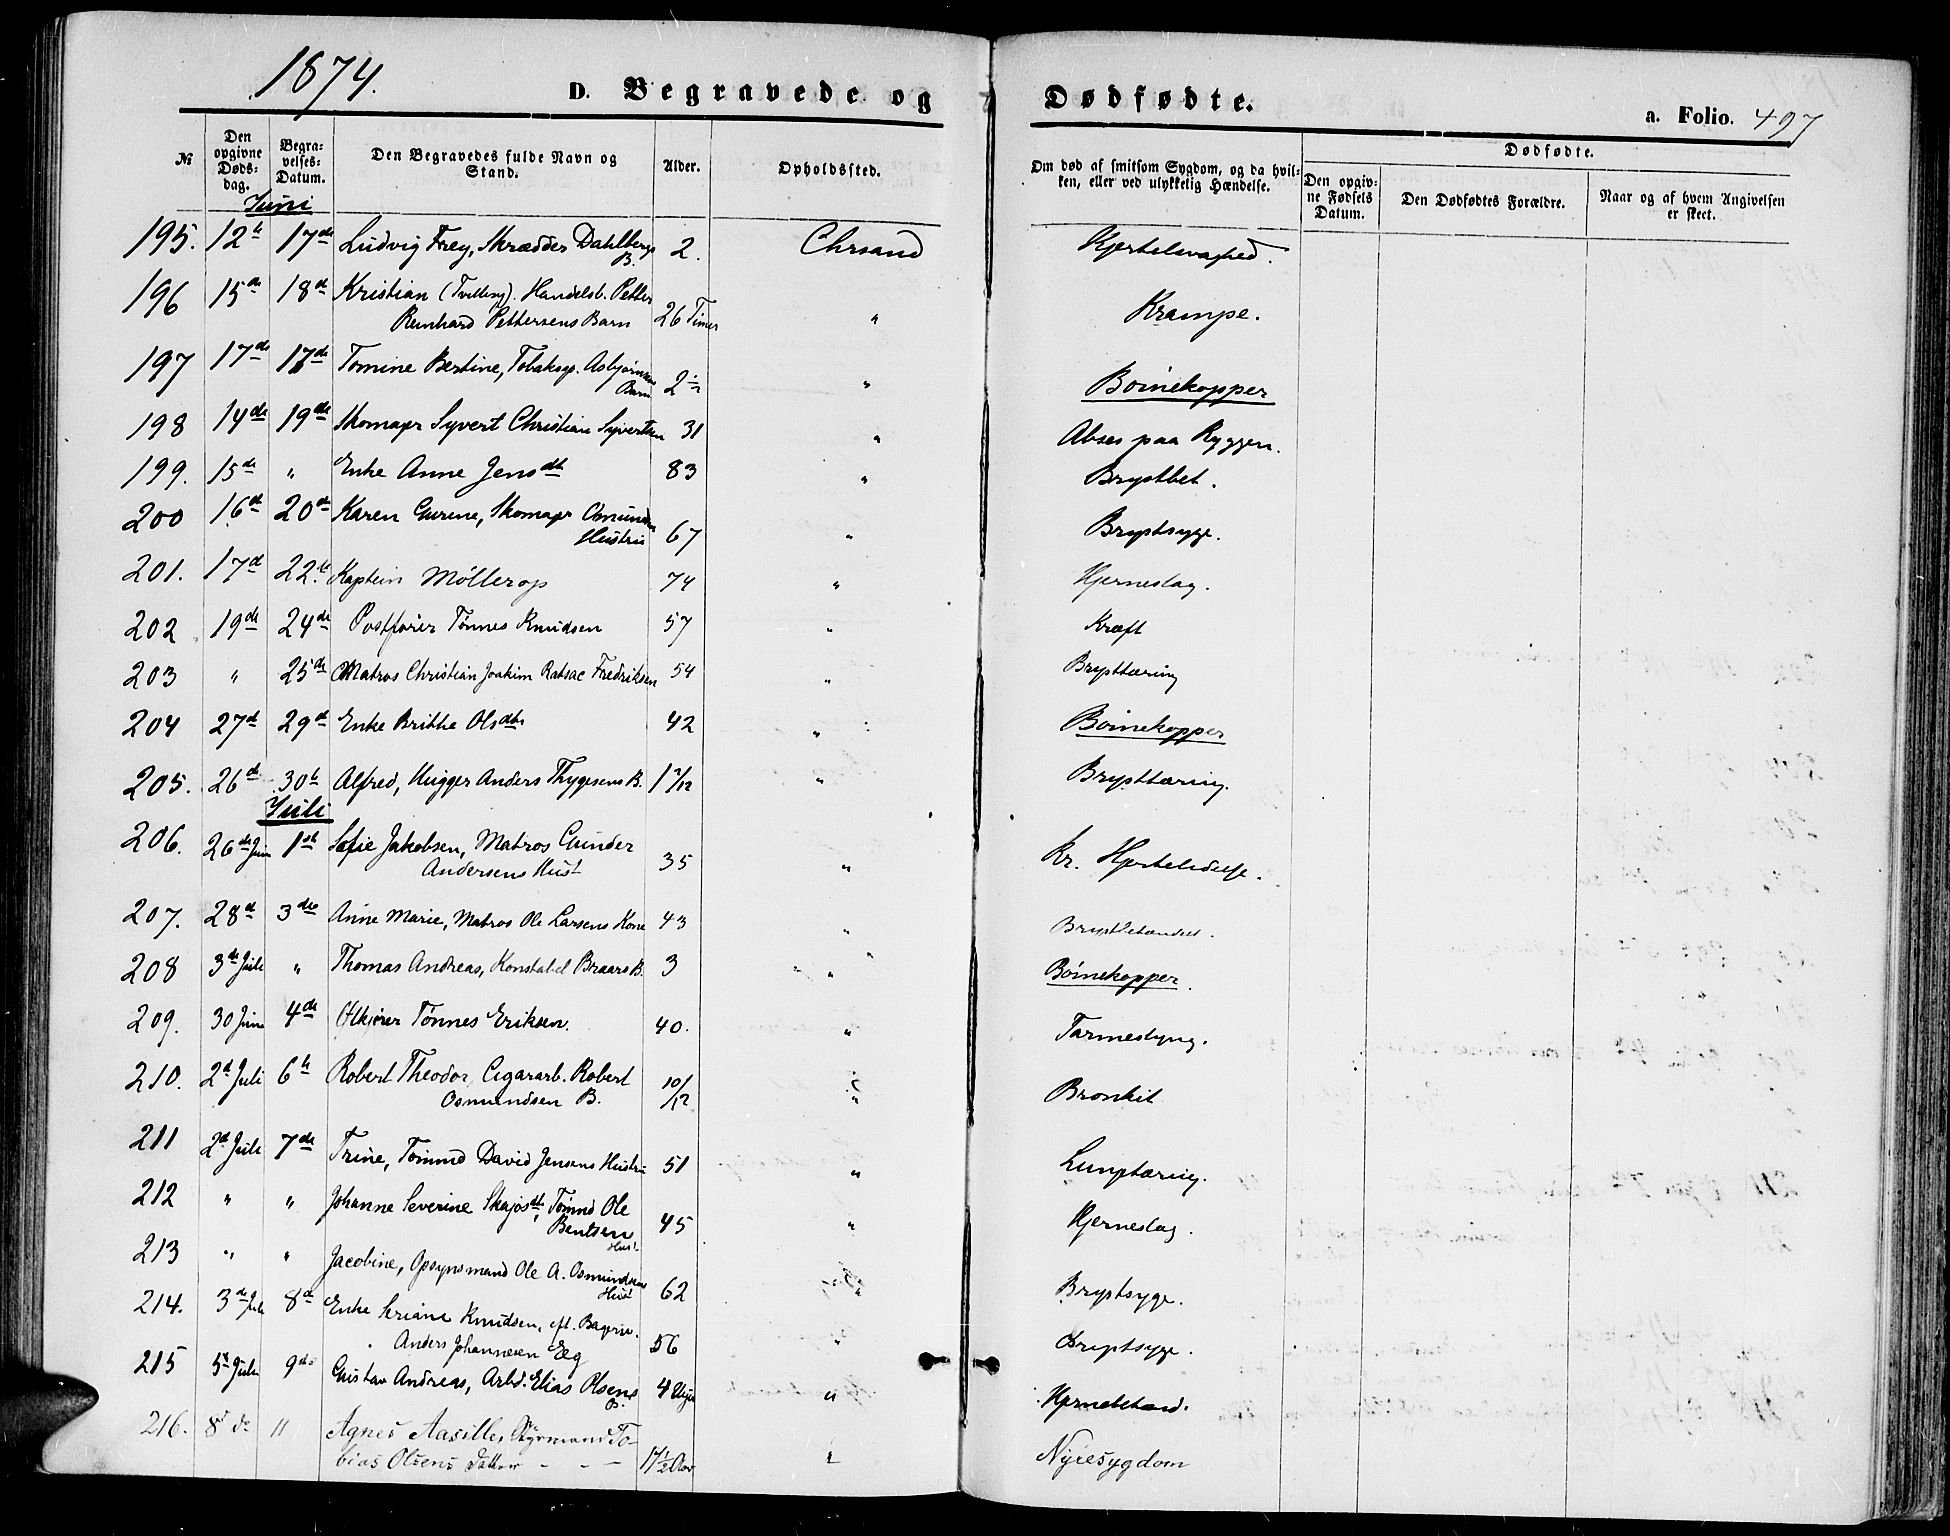 1874.
D. Begravede og Dødfødte.
a. Folio. 497
№
Den opgivne Dødsdag.
Begravelses-Datum.
Den Begravedes fulde Navn og Stand.
Alder.
Opholdssted.
Om død af smitsom Sygdom, og da hvilken, eller ved ulykkelig Hændelse.
Dødfødte.
Den opgivne Fødsels Datum.
Den Dødfødtes Forældre.
Naar og af hvem Angivelsen er skeet.
Juni
195. 12te 17de Ludvig Frey, Skrædder Dahlbergs B. 2. Chrsand Kjertelsvaghed.
196 15de 18de Kristian (Tvilling). Handelsb. Petter
Reinhard Pettersens Barn 26 Timer " Krampe.
197 17de 17de Tomine Bertine, Tobaksp. Asbjørnsens
Barn 2 " Boinekopper
198 14de 19de Skomagr Syvert Christian Syvertsen 31 " Abses paa Ryggen.
199. 15de " Enke Anne Jensdt 83 " Brystbet.
200 16de 20de Karen Gurine, Skomagr Omunds
Hustru 67 " Brystsyge.
201. 17d 22de Kaptein Møllerop 74 " Hjerneslag.
202 19de 24de Postfører Tønnes Knudsen 57 " Kræft
203 " 25de Matros Christian Joakim Ratsac Fredriksen 54 " Brysttæring
204 27d 29d Enke Brithe Olsdtr 42 " Boinekopper
205. 26d 30te Alfred, Hugger Anders Thygesens B. 1 7/12 " Brysttæring.
Juli
206. 26de Juni 1ste Sofie Jakobsen, Matros Gunder
Andersens Hust 35 " Kr. Hjertelidelse.
207. 28d 3die Anne Marie, Matros Ole Larsens Kone 43 " Brystbetændel.
208 3de Juli " Thomas Andreas, Konstabel Braars B. 3 " Boinekopper.
209. 30 Juni 4de Ølkjører Tønnes Eriksen. 40. " Tarmeslyng.
210. 2d Juli 6te Robert Theodor, Cigararb. Robert
Osmundsen B. 10/12 " Bronkit
211 2d Juli 7de Trine, Tømmd David Jensens Hustru 51 " Lungtæring.
212 " " Johanne Severine Skajosdt, Tømmd Ole
Bentsens
Hust. 45 " Hjerneslag.
213 " " Jacobine, Opsynsmand Ole A. Osmundsens
Hust 62 " Brystsyge.
214. 3de Juli 8d Enke Seriane Knudsen, eft. Bagerm.
Anders Johannesen Eeg 56 " Brystsyge.
215 5t Juli 9de Gustav Andreas, Arbd. Elias Olsens
B. 4 Uger " Hjernebetænd.
216. 8d do 11 Agnes Aasille, Styrmand To-
bias Olsens Datter - - - 17½ Aar " Nyresygdom